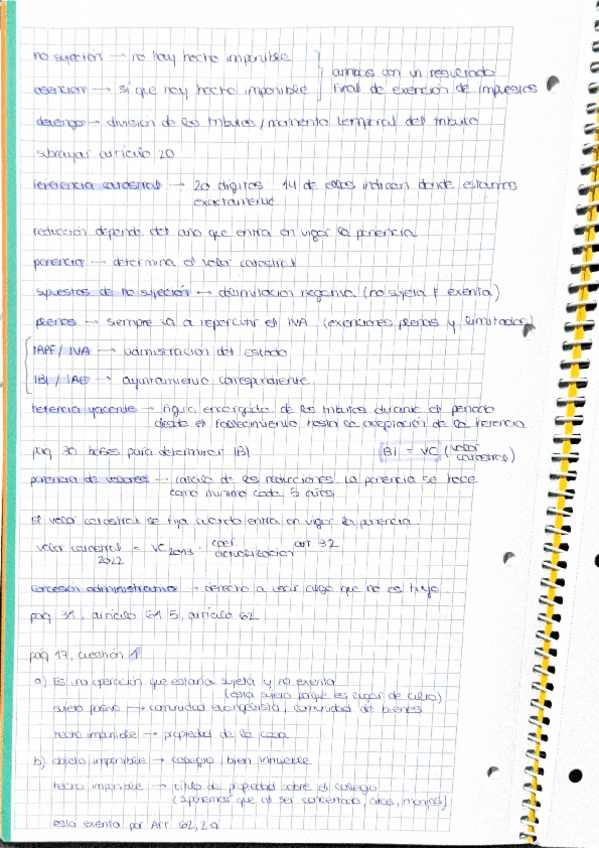 no sujeción → no hay hecho imponible
exención → sí que hay hecho imponible
ambos con un resultado
final de exención de impuestos
devengo → división de los tributos / momento temporal del tributo
subrayar artículo 20
referencia catastral → 20 dígitos 14 de ellos indican donde estamos
exactamente
reducción depende del año que entra en vigor la ponencia
ponencia → determina el valor catastral
supuestos de no sujeción → delimitación negativa (no sujeta ≠ exenta)
plenos → siempre va a repercutir el IVA (exenciones plenas y limitadas)
IRPF / IVA → administración del estado
IBI / IAE → ayuntamiento correspondiente
herencia yacente → figura encargada de los tributos durante el periodo
desde el fallecimiento hasta la aceptación de la herencia
pág 30 bases para determinar IBI
BI = VC (valor catastral)
ponencia de valores → cálculo de las reducciones. La ponencia se hace
como mínimo cada 5 años
El valor catastral se fija cuando entra en vigor la ponencia
valor catastral 2022 = VC 2013 · coef. actualización art 32
concesión administrativa → derecho a usar algo que no es tuyo
pág 31, artículo 61.5, artículo 62
pág 17, cuestión 1
a) Es una operación que estaría sujeta y no exenta
(está sujeto porque es lugar de culto)
sujeto pasivo → comunidad , comunidad de bienes
hecho imponible → propiedad de la casa
b) objeto imponible → colegio, bien inmueble
hecho imponible → título de propiedad sobre el colegio
(suponemos que al ser concertado, )
está exenta por Art. 62, 2a